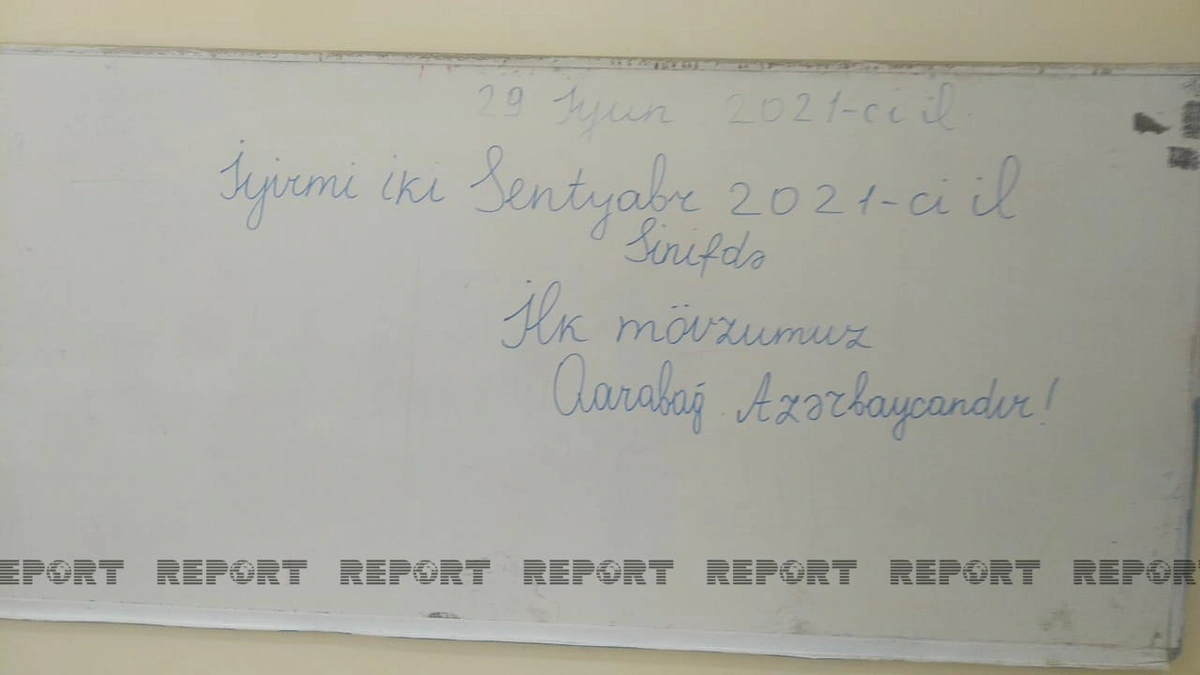 29 İyun 2021-ci il
İyirmi iki Sentyabr 2021-ci il
Sinifdə
İlk mövzumuz
Qarabağ Azərbaycandır!
REPORT REPORT REPORT REPORT REPORT REPORT REPORT